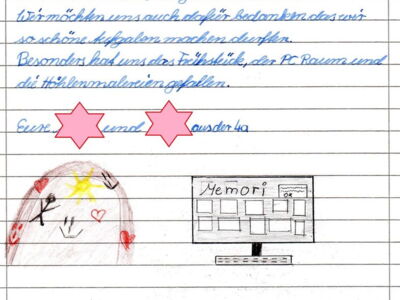 Wir möchten uns auch dafür bedanken das wir
so schöne Aufgaben machen durften.
Besonders hat uns das Frühstück, der PC Raum und
die Höhlenmalereien gefallen.
Eure und aus der 4a
Memori
OK